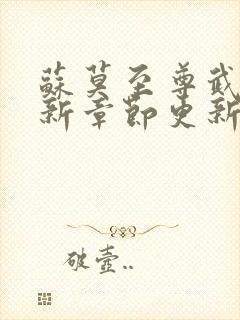 蘇莫至尊武
新章節更新
破壺..